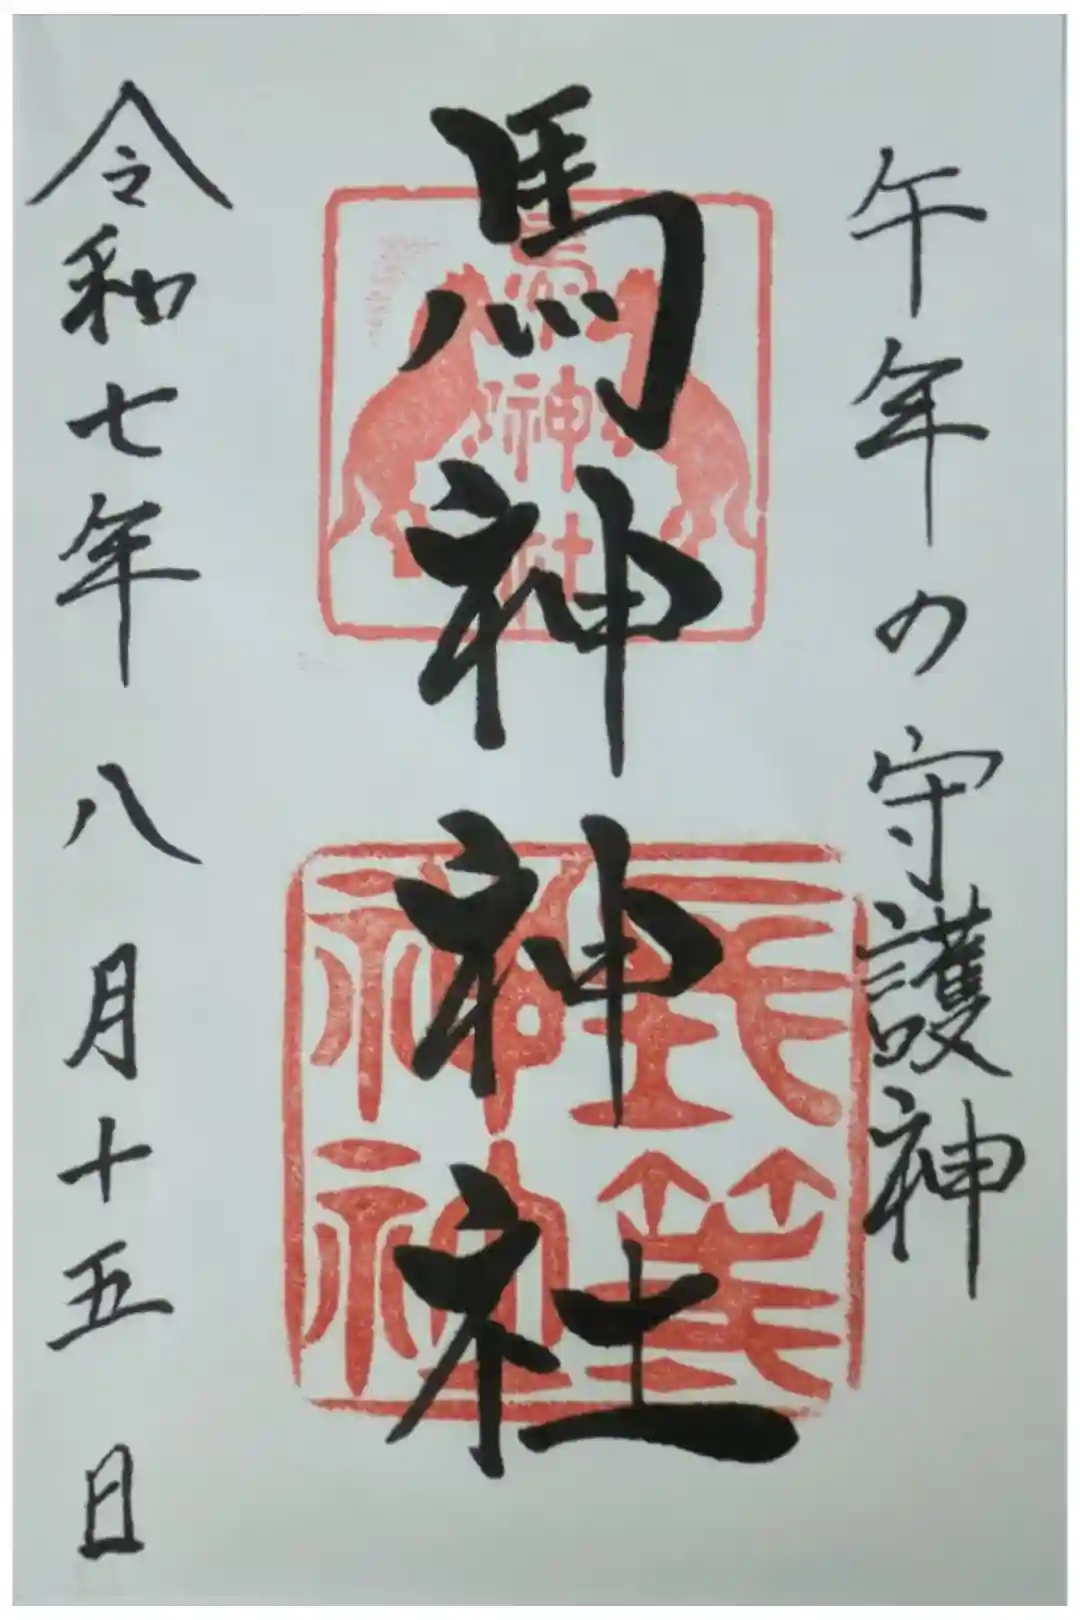 午年の守護神
馬神神社
馬神神社
令和七年八月十五日